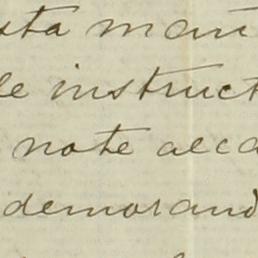 sta man
le instruct
note alca
demorand